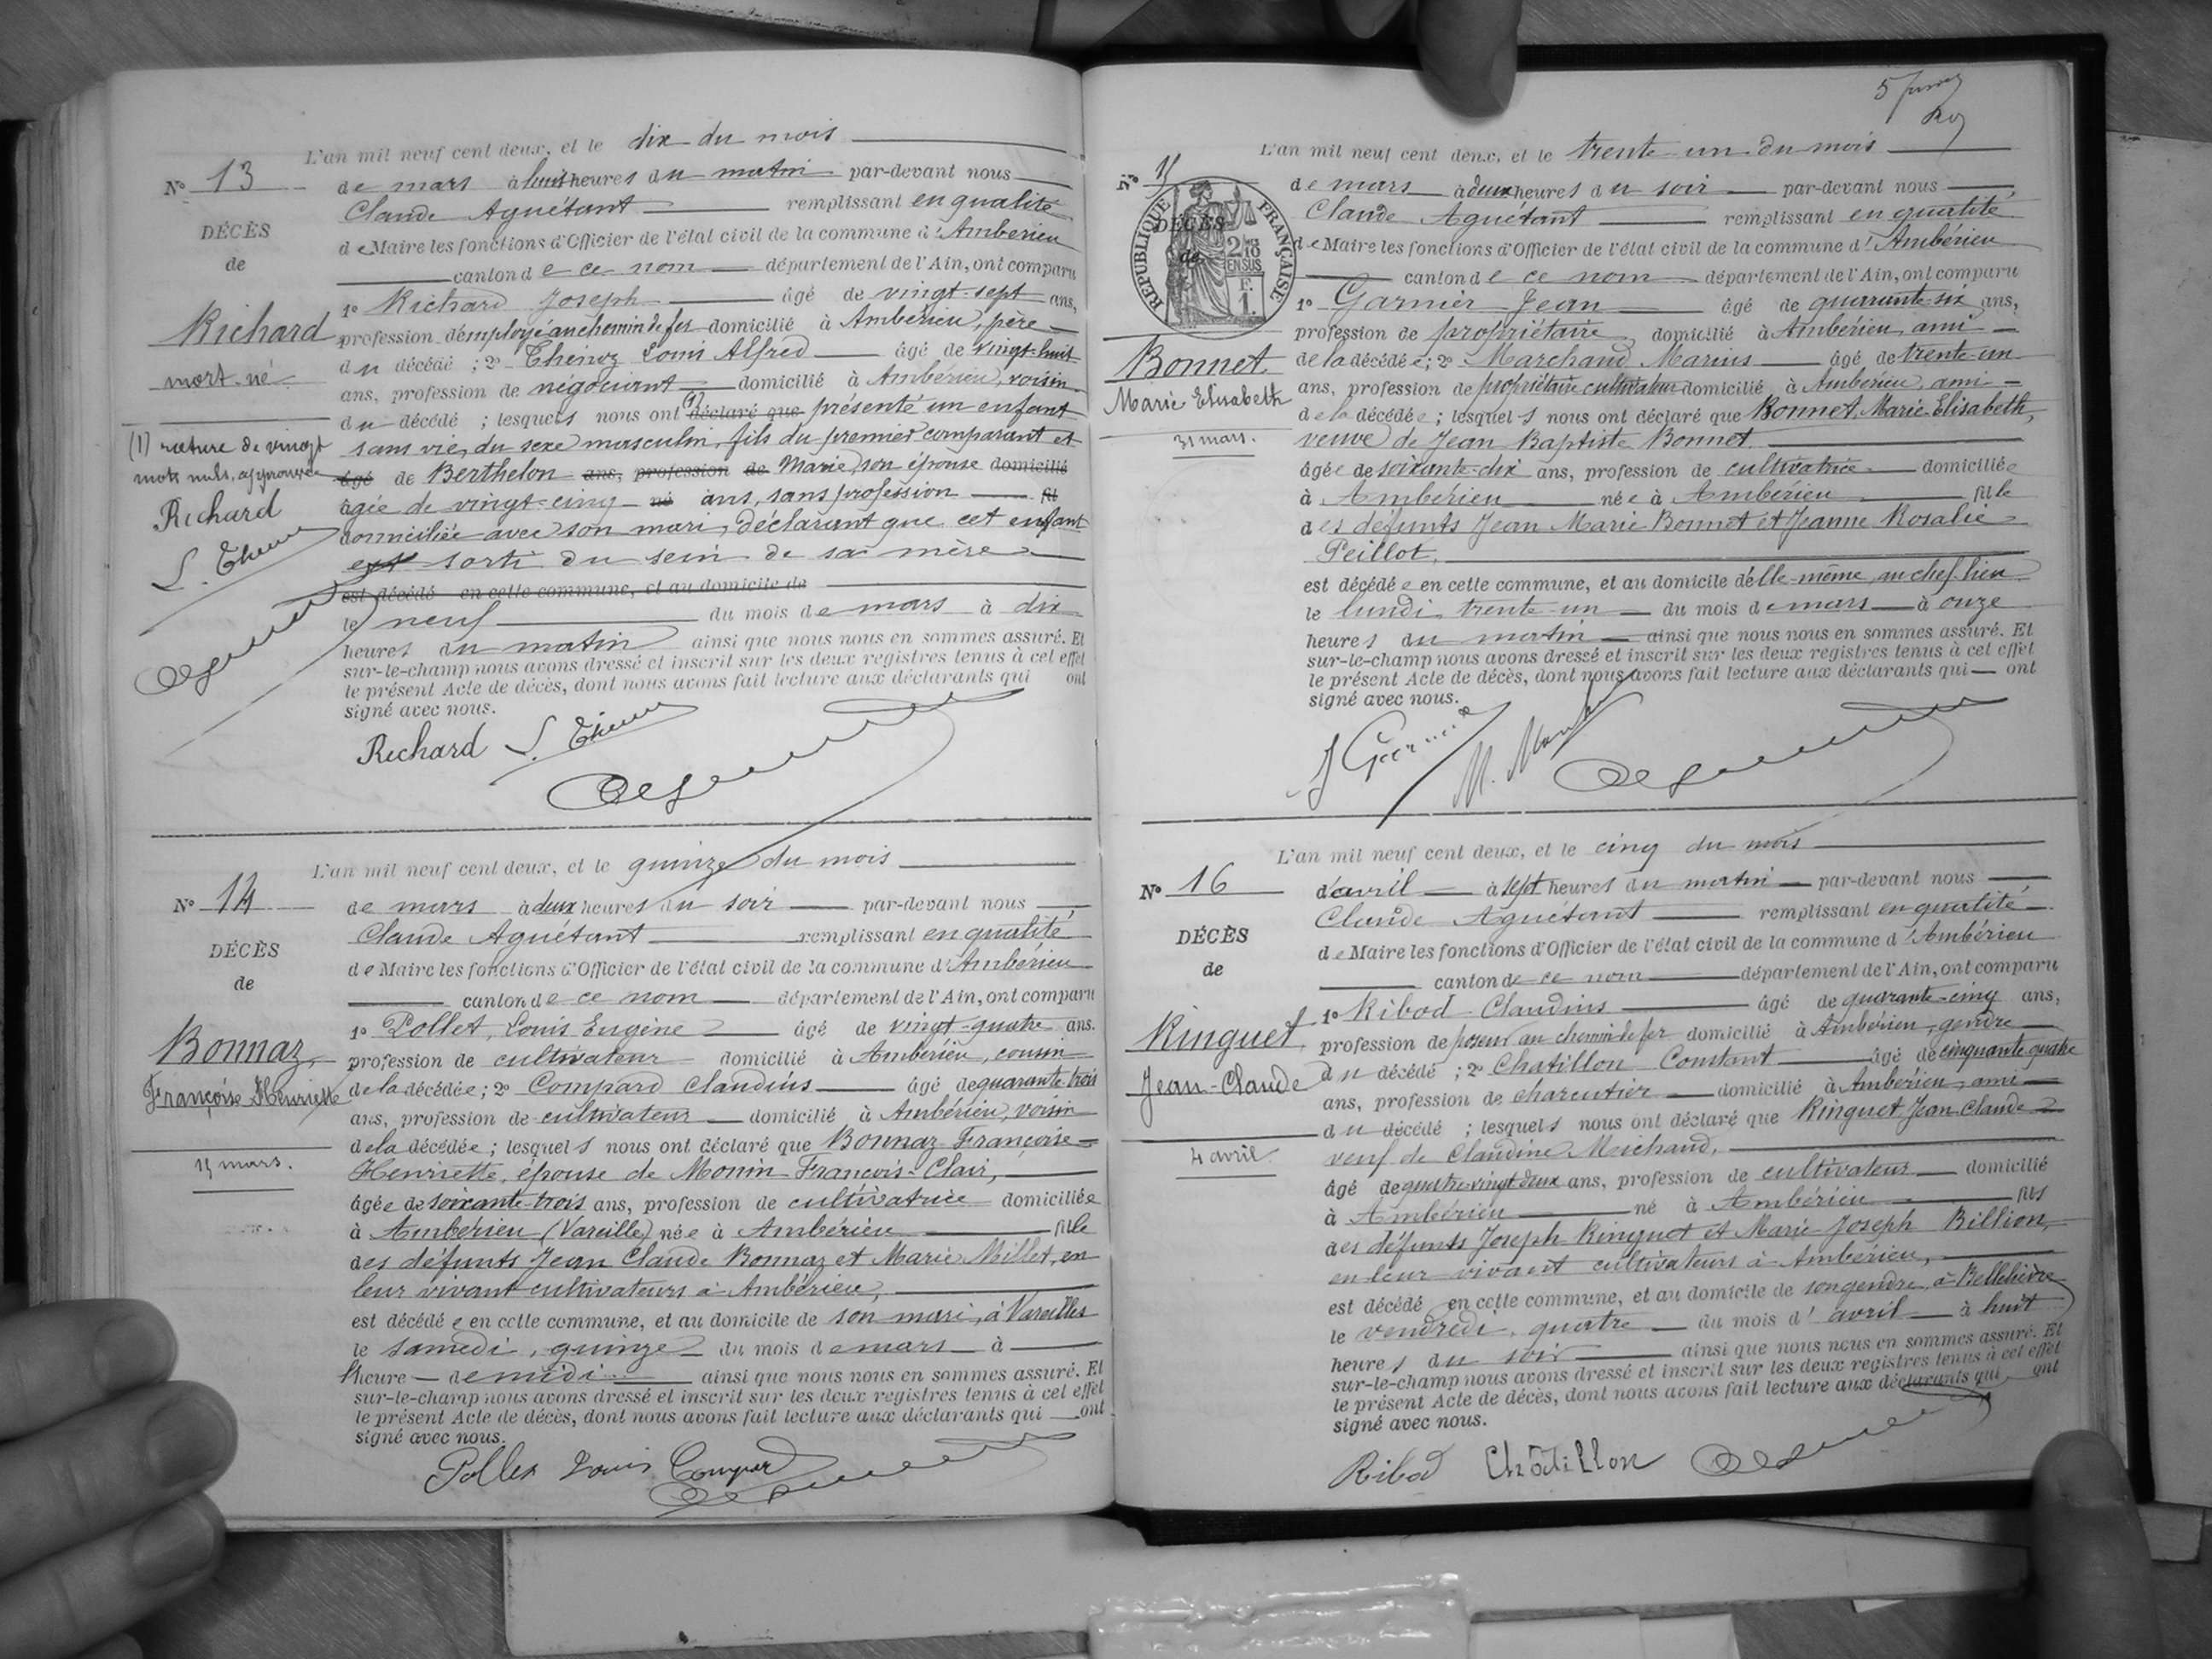 L'an mil neuf cent deux, et le dix du mois
N° 13
de mars à huit heures du matin par-devant nous
Claude Aguétant remplissant en qualité
DÉCÈS
de Maire les fonctions d'Officier de l'état civil de la commune d'Ambérieu
de
canton de ce nom département de l'Ain, ont comparu
1° Richard Joseph âgé de vingt-sept ans,
Richard
profession d'employé au chemin de fer domicilié à Ambérieu, père
mort-né
du décédé ; 2° Louis Alfred âgé de vingt-huit
ans, profession de négociant domicilié à Ambérieu, voisin
du décédé ; lesquels nous ont (1) déclaré que présenté un enfant
(1) rature de vingt
sans vie, du sexe masculin, fils du premier comparant et
mots nuls, approuvée
âgé de Berthelon ans, profession de Marie, son épouse domicilié
Richard
âgée de vingt-cinq né ans, sans profession fil
domiciliée avec son mari, déclarant que cet enfant
est sorti du sein de sa mère
est décédé en cette commune, et au domicile de
le neuf du mois de mars à dix
heures du matin ainsi que nous nous en sommes assuré. Et
sur-le-champ nous avons dressé et inscrit sur les deux registres tenus à cet effet
le présent Acte de décès, dont nous avons fait lecture aux déclarants qui ont
signé avec nous.
Richard
L'an mil neuf cent deux, et le quinze du mois
N° 14
de mars à deux heures du soir par-devant nous
Claude Aguétant remplissant en qualité
DÉCÈS
de Maire les fonctions d'Officier de l'état civil de la commune d'Ambérieu
de
canton de ce nom département de l'Ain, ont comparu
1° Pollet, Louis Eugène âgé de vingt-quatre ans.
Bonnaz,
profession de cultivateur domicilié à Ambérieu, cousin
Françoise Henriette
de la décédée ; 2° Compard Claudius âgé de quarante-trois
ans, profession de cultivateur domicilié à Ambérieu, voisin
de la décédée ; lesquels nous ont déclaré que Bonnaz Françoise
15 mars.
Henriette, épouse de Monin François-Clair,
âgée de soixante-trois ans, profession de cultivatrice domiciliée
à Ambérieu (Vareille) née à Ambérieu fille
des défunts Jean Claude Bonnaz et Marie Millet, en
leur vivant cultivateurs à Ambérieu,
est décédée en cette commune, et au domicile de son mari, à Vareilles
le samedi, quinze du mois de mars à
l'heure de midi ainsi que nous nous en sommes assuré. Et
sur-le-champ nous avons dressé et inscrit sur les deux registres tenus à cet effet
le présent Acte de décès, dont nous avons fait lecture aux déclarants qui ont
signé avec nous.
Pollet Louis Compard
L'an mil neuf cent deux, et le trente-un du mois
N° 15
de mars à deux heures du soir par-devant nous
Claude Aguétant remplissant en qualité
RÉPUBLIQUE FRANÇAISE
2/10 EN SUS
F. 1.
DÉCÈS
de Maire les fonctions d'Officier de l'état civil de la commune d'Ambérieu
de
canton de ce nom département de l'Ain, ont comparu
1° Garnier Jean âgé de quarante-six ans,
profession de propriétaire domicilié à Ambérieu, ami
Bonnet
de la décédée ; 2° Marchand Marius âgé de trente-un
Marie Elisabeth
ans, profession de propriétaire cultivateur domicilié à Ambérieu, ami
de la décédée ; lesquels nous ont déclaré que Bonnet, Marie-Elisabeth,
31 mars.
veuve de Jean Baptiste Bonnet.
âgée de soixante-dix ans, profession de cultivatrice domiciliée
à Ambérieu née à Ambérieu fille
des défunts Jean Marie Bonnet et Jeanne Rosalie
Peillot.
est décédée en cette commune, et au domicile d'elle-même, au chef-lieu
le lundi, trente-un du mois de mars à onze
heures du matin ainsi que nous nous en sommes assuré. Et
sur-le-champ nous avons dressé et inscrit sur les deux registres tenus à cet effet
le présent Acte de décès, dont nous avons fait lecture aux déclarants qui ont
signé avec nous.
J Garnier
L'an mil neuf cent deux, et le cinq du mois
N° 16
d'avril à sept heures du matin par-devant nous
Claude Aguétant remplissant en qualité
DÉCÈS
de Maire les fonctions d'Officier de l'état civil de la commune d'Ambérieu
de
canton de ce nom département de l'Ain, ont comparu
1° Ribod Claudius âgé de quarante-cinq ans,
Ringuet
profession de poseur au chemin de fer domicilié à Ambérieu, gendre
Jean-Claude
du décédé ; 2° Chatillon Constant âgé de cinquante-quatre
ans, profession de charcutier domicilié à Ambérieu, ami
du décédé ; lesquels nous ont déclaré que Ringuet Jean Claude
4 avril.
veuf de Claudine Michaud,
âgé de quatre-vingt-deux ans, profession de cultivateur domicilié
à Ambérieu né à Ambérieu fils
des défunts Joseph Ringuet et Marie-Joseph Billion,
en leur vivant cultivateurs à Ambérieu,
est décédé en cette commune, et au domicile de son gendre, à Bellelièvre
le vendredi, quatre du mois d'avril à huit
heures du soir ainsi que nous nous en sommes assuré. Et
sur-le-champ nous avons dressé et inscrit sur les deux registres tenus à cet effet
le présent Acte de décès, dont nous avons fait lecture aux déclarants qui ont
signé avec nous.
Ribod Châtillon